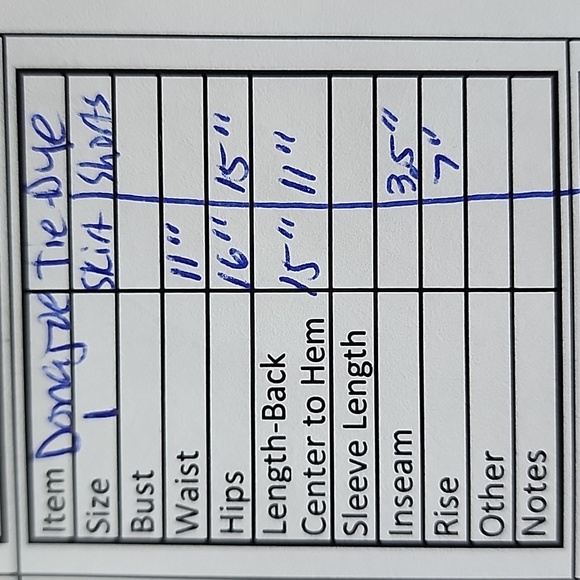 Item Danskin Tie Dye
Size 1 Skirt Shorts
Bust
Waist 11"
Hips 16" 15"
Length-Back
Center to Hem 15" 11"
Sleeve Length
Inseam 3.5"
Rise 7"
Other
Notes